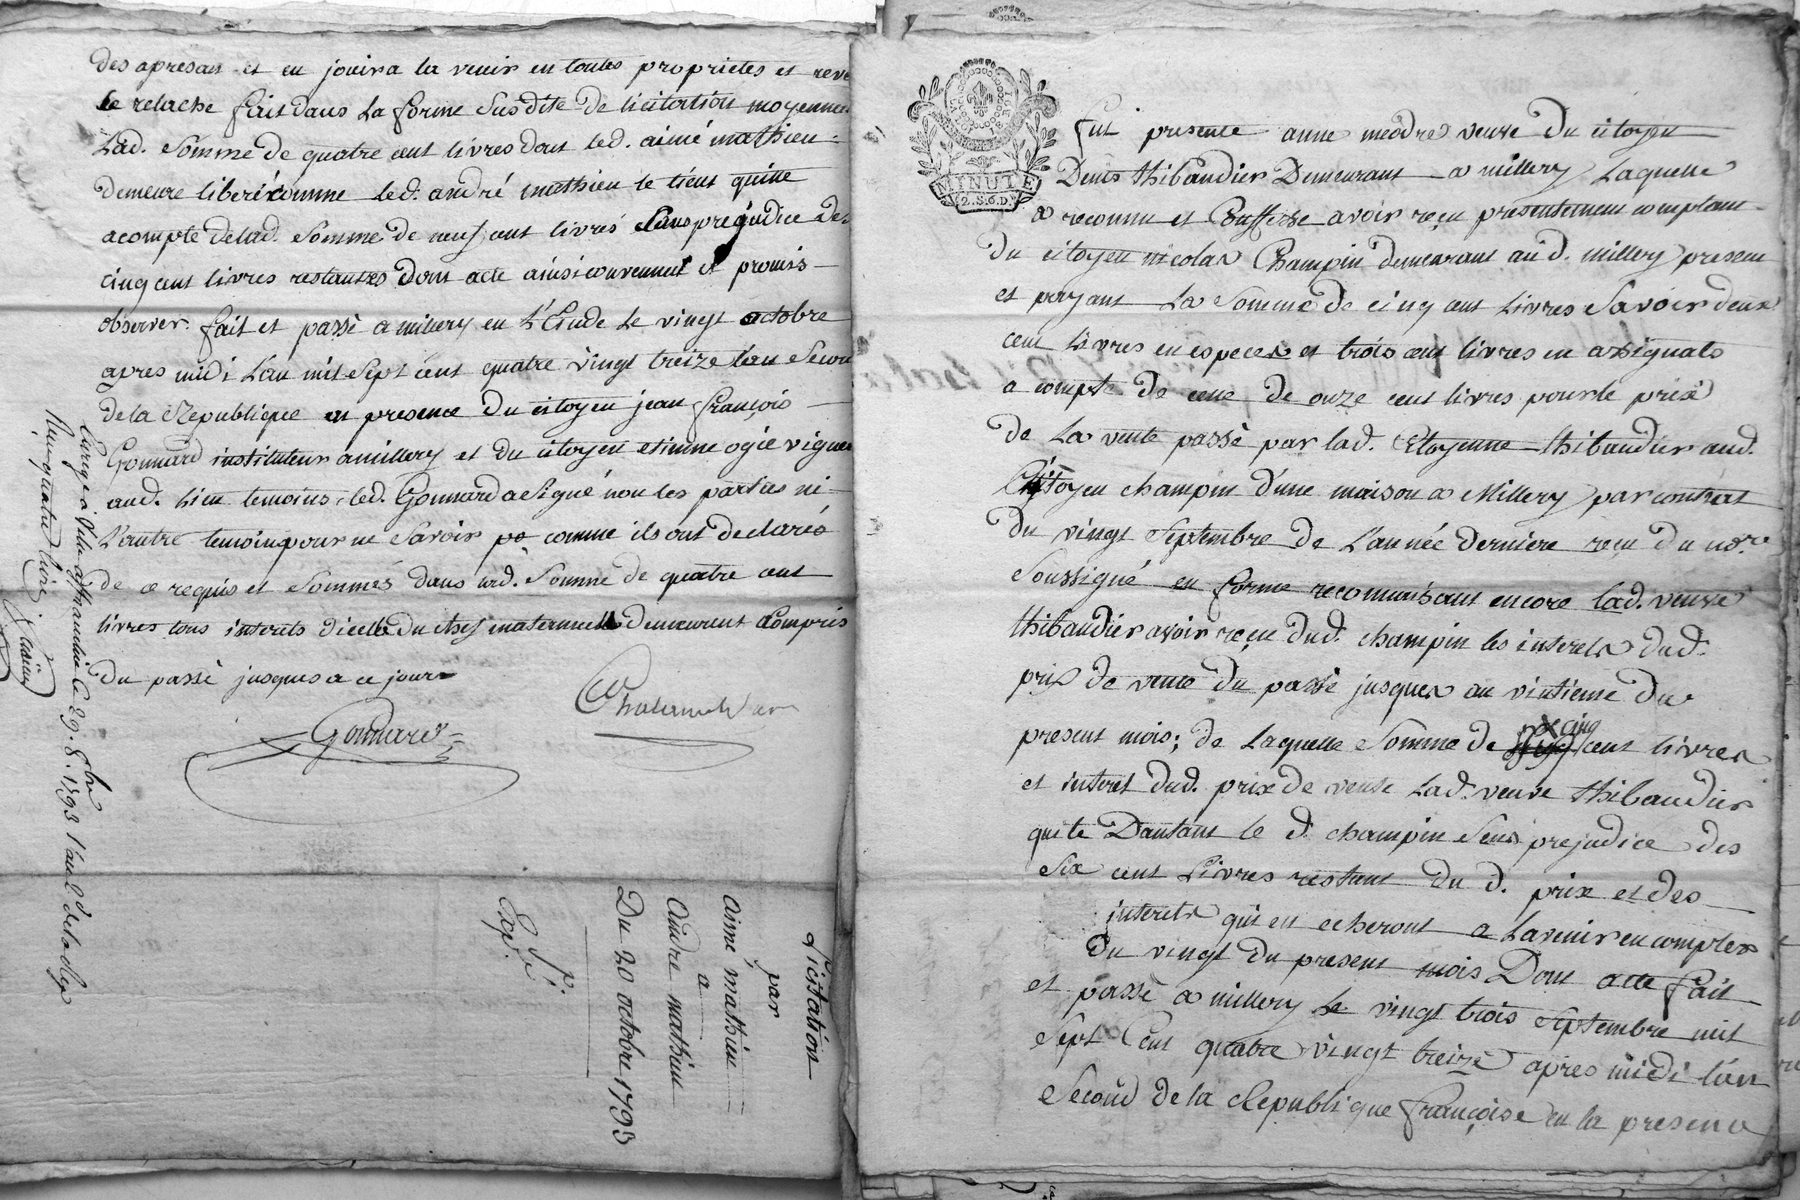 des apresan et en jouira la venir en toutes proprietes et reve
le relache fait dans la forme susdite de licitation moyenna
Lad. somme de quatre cent livres dont led. aimé mathieu
demeure liberé comme led. andré mathieu le tient quitte
acompte delad. somme de neuf cent livres sans prejudice des
cinq cent livres restantes dont acte ainsi convenu et promis
observer. fait et passé a millery en l'Etude le vingt octobre
apres midi l'an mil sept cent quatre vingt treize l'an secon
de la Republique en presence du citoyen jean françois
Gonnard instituteur a millery et du citoyen etienne ogié vigner
aud. lieu temoins, led. Gonnard a signé non les parties ni
l'autre temoin pour ne savoir comme ils ont declaré
de ce requis et sommés dans lad. somme de quatre cent
livres tous interets d'icelle du chef maternel demeurent compris
du passé jusques a ce jour
Gonnard
Enregé à Ville affranchie le 29. 8.bre 1793 l'an 2.d de la Rep
Licitation
par
aimé mathieu
a
andré mathieu
Du 20 octobre 1793
Exp.
MINUTE
2.S.6.D.
fut presente anne meodre veuve du citoyen
Denis thibaudier Demeurant a millery Laquelle
a reconnu et Confesse avoir reçu presentement comptant
du citoyen nicolas Champin demeurant aud. millery present
et payant La somme de cinq cent livres savoir deux
cent livres en especes et trois cent livres en assignats
a compte de celle de onze cent livres pour le prix
de La vente passé par lad. Citoyenne thibaudier aud.
Citoyen champin d'une maison a Millery par contrat
du vingt septembre de L'année derniere reçu du no.re
soussigné en forme reconnaisant encore lad. veuve
thibaudier avoir reçu dud. champin les interets dud.
prix de vente du passé jusques au vintieme du
present mois; de Laquelle somme de cinq cent livres
et interet dud. prix de vente Lad. veuve thibaudier
quite Dautant le d. champin sans prejudice des
six cent Livres restant du d. prix et des
interets qui en echeront a Lavenir en compter
du vingt du present mois Dont acte fait
et passé a millery le vingt trois septembre mil
sept Cent quatre vingt treize apres midi l'an
second de la Republique françoise en la presence